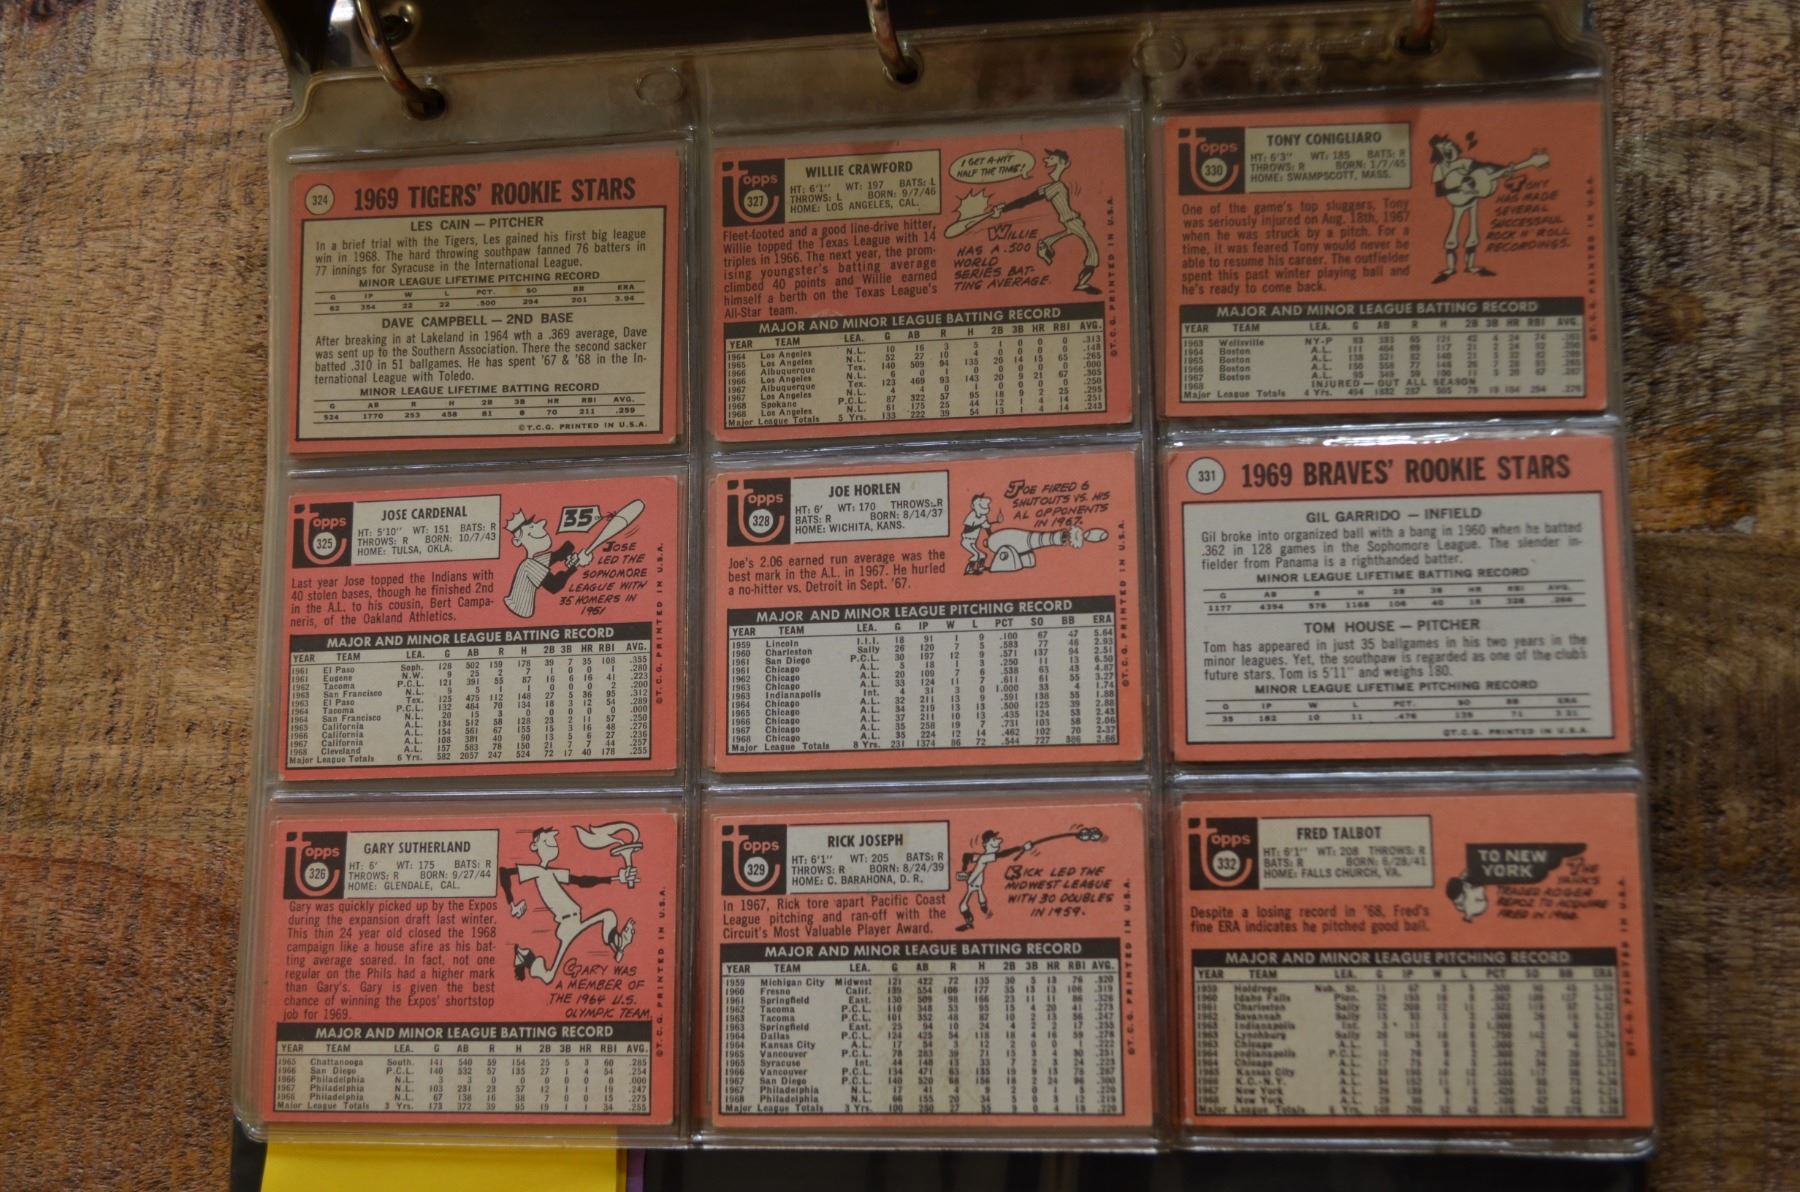 324 1969 TIGERS' ROOKIE STARS
LES CAIN — PITCHER
In a brief trial with the Tigers, Les gained his first big league
win in 1968. The hard throwing southpaw fanned 76 batters in
77 innings for Syracuse in the International League.
MINOR LEAGUE LIFETIME PITCHING RECORD
G IP W L PCT. SO BB ERA
62 354 22 22 .500 294 201 3.94
DAVE CAMPBELL — 2ND BASE
After breaking in at Lakeland in 1964 wth a .369 average, Dave
was sent up to the Southern Association. There the second sacker
batted .310 in 51 ballgames. He has spent '67 & '68 in the In-
ternational League with Toledo.
MINOR LEAGUE LIFETIME BATTING RECORD
G AB R H 2B 3B HR RBI AVG.
524 1770 253 458 81 8 70 211 .259
©T.C.G. PRINTED IN U.S.A.
Topps
325
JOSE CARDENAL
HT: 5'10" WT: 151 BATS: R
THROWS: R BORN: 10/7/43
HOME: TULSA, OKLA.
35
JOSE
LED THE
SOPHOMORE
LEAGUE WITH
35 HOMERS IN
1961
Last year Jose topped the Indians with
40 stolen bases, though he finished 2nd
in the A.L. to his cousin, Bert Campa-
neris, of the Oakland Athletics.
MAJOR AND MINOR LEAGUE BATTING RECORD
YEAR TEAM LEA. G AB R H 2B 3B HR RBI AVG.
1961 El Paso Soph. 128 502 159 178 39 7 35 108 .355
1961 Eugene N.W.
1962 Tacoma P.C.L. 121 391 55 87 16 6 16 41 .223
1963 San Francisco N.L.
1963 El Paso Tex. 125 475 112 148 27 5 36 95 .312
1964 Tacoma P.C.L. 132 464 70 134 18 3 12 54 .289
1964 San Francisco N.L. 20 15 3 0 0 0 0 0 .000
1965 California A.L. 134 512 58 128 23 2 11 57 .250
1966 California A.L. 154 561 67 155 15 3 16 48 .276
1967 California A.L. 108 381 40 90 13 5 6 27 .236
1968 Cleveland A.L. 157 583 78 150 21 7 7 44 .257
Major League Totals 6 Yrs. 582 2057 247 524 72 17 40 178 .255
©T.C.G. PRINTED IN U.S.A.
Topps
326
GARY SUTHERLAND
HT: 6' WT: 175 BATS: R
THROWS: R BORN: 9/27/44
HOME: GLENDALE, CAL.
Gary was quickly picked up by the Expos
during the expansion draft last winter.
This thin 24 year old closed the 1968
campaign like a house afire as his bat-
ting average soared. In fact, not one
regular on the Phils had a higher mark
than Gary's. Gary is given the best
chance of winning the Expos' shortstop
job for 1969.
GARY WAS
A MEMBER OF
THE 1964 U.S.
OLYMPIC TEAM.
MAJOR AND MINOR LEAGUE BATTING RECORD
YEAR TEAM LEA. G AB R H 2B 3B HR RBI AVG.
1965 Chattanooga South. 141 540 59 154 25 5 3 60 .285
1966 San Diego P.C.L. 140 532 57 135 27 1 4 54 .254
1966 Philadelphia N.L. 3 3 0 0 0 0 0 0 .000
1967 Philadelphia N.L. 103 231 23 57 12 1 1 19 .247
Philadelphia N.L. 67 138 16 38 7 0 0 15 .275
Major League Totals 3 Yrs. 173 372 39 95 19 1 1 34 .255
©T.C.G. PRINTED IN U.S.A.
Topps
327
WILLIE CRAWFORD
HT: 6'1" WT: 197 BATS: L
THROWS: L BORN: 9/7/46
HOME: LOS ANGELES, CAL.
I GET A-HIT
HALF THE TIME!
WILLIE
HAS A .500
WORLD
SERIES BAT-
TING AVERAGE.
Fleet-footed and a good line-drive hitter,
Willie topped the Texas League with 14
triples in 1966. The next year, the prom-
ising youngster's batting average
climbed 40 points and Willie earned
himself a berth on the Texas League's
All-Star team.
MAJOR AND MINOR LEAGUE BATTING RECORD
YEAR TEAM LEA. G AB R H 2B 3B HR RBI AVG.
1964 Los Angeles N.L. 10 16 3 5 1 0 0 0 .313
1965 Los Angeles N.L. 52 27 10 4 0 0 0 0 .148
1966 Albuquerque Tex. 140 509 94 135 20 14 15 65 .265
1966 Los Angeles N.L. 6 0 1 0 0 0 0 0 .000
1967 Albuquerque Tex. 123 469 93 143 20 9 21 67 .305
1967 Los Angeles N.L. 4 4 0 1 0 0 0 0 .250
1968 Spokane P.C.L. 87 322 57 95 18 9 2 25 .295
1968 Los Angeles N.L. 61 175 25 44 12 1 4 14 .251
Major League Totals 5 Yrs. 133 222 39 54 13 1 4 14 .243
©T.C.G. PRINTED IN U.S.A.
Topps
328
JOE HORLEN
HT: 6' WT: 170 THROWS: R
BATS: R BORN: 8/14/37
HOME: WICHITA, KANS.
JOE FIRED 6
SHUTOUTS VS. HIS
AL OPPONENTS
IN 1967.
Joe's 2.06 earned run average was the
best mark in the A.L. in 1967. He hurled
a no-hitter vs. Detroit in Sept. '67.
MAJOR AND MINOR LEAGUE PITCHING RECORD
YEAR TEAM LEA. G IP W L PCT SO BB ERA
1959 Lincoln I.I.I. 18 91 1 9 .100 67 47 5.64
1960 Charleston Sally 26 120 7 5 .583 77 46 2.93
1961 San Diego P.C.L. 30 197 12 9 .571 137 94 2.51
1961 Chicago A.L. 5 18 1 3 .250 11 13 6.50
1962 Chicago A.L. 20 109 7 6 .538 63 43 4.87
1963 Chicago A.L. 33 124 11 7 .611 61 55 3.27
1963 Indianapolis Int. 4 31 3 0 1.000 33 4 1.74
1964 Chicago A.L. 32 211 13 9 .591 138 55 1.88
1965 Chicago A.L. 34 219 13 13 .500 125 39 2.88
1966 Chicago A.L. 37 211 10 13 .435 124 53 2.43
1967 Chicago A.L. 35 258 19 7 .731 103 58 2.06
1968 Chicago A.L. 35 224 12 14 .462 102 70 2.37
Major League Totals 8 Yrs. 231 1374 86 72 .544 727 386 2.66
©T.C.G. PRINTED IN U.S.A.
Topps
329
RICK JOSEPH
HT: 6'1" WT: 205 BATS: R
THROWS: R BORN: 8/24/39
HOME: C. BARAHONA, D. R.
RICK LED THE
MIDWEST LEAGUE
WITH 30 DOUBLES
IN 1959.
In 1967, Rick tore apart Pacific Coast
League pitching and ran-off with the
Circuit's Most Valuable Player Award.
MAJOR AND MINOR LEAGUE BATTING RECORD
YEAR TEAM LEA. G AB R H 2B 3B HR RBI AVG.
1959 Michigan City Midwest 121 422 72 135 30 5 13 76 .320
1960 Fresno Calif.
1961 Springfield East. 130 509 98 166 23 11 11 86 .326
1962 Tacoma P.C.L. 110 348 53 95 15 4 20 41 .273
1963 Tacoma P.C.L. 101 352 48 87 10 2 13 56 .247
1963 Springfield East. 25 94 10 24 4 2 2 17 .255
1964 Dallas P.C.L. 124 425 54 118 18 4 16 59 .278
1964 Kansas City A.L. 17 54 3 12 2 0 0 1 .222
1965 Vancouver P.C.L. 78 283 39 71 15 3 4 30 .251
1965 Syracuse Int. 44 148 13 33 7 2 3 24 .223
1966 Vancouver P.C.L. 134 471 63 135 19 9 13 78 .287
1967 San Diego P.C.L. 140 520 68 156 18 2 24 96 .300
1967 Philadelphia N.L. 17 41 4 9 2 0 1 5 .220
1968 Philadelphia N.L. 66 155 20 34 5 0 3 12 .219
Major League Totals 3 Yrs. 100 250 27 55 9 0 4 18 .220
©T.C.G. PRINTED IN U.S.A.
Topps
330
TONY CONIGLIARO
HT: 6'3" WT: 185 BATS: R
THROWS: R BORN: 1/7/45
HOME: SWAMPSCOTT, MASS.
TONY
HAS MADE
SEVERAL
SUCCESSFUL
ROCK N' ROLL
RECORDINGS.
One of the game's top sluggers, Tony
was seriously injured on Aug. 18th, 1967
when he was struck by a pitch. For a
time, it was feared Tony would never be
able to resume his career. The outfielder
spent this past winter playing ball and
he's ready to come back.
MAJOR AND MINOR LEAGUE BATTING RECORD
YEAR TEAM LEA. G AB R H 2B 3B HR RBI AVG.
1963 Wellsville NY-P 83 333 65 121 42 4 24 74
1964 Boston A.L. 111 404 69 117
1965 Boston A.L. 138 521 82
1966 Boston A.L. 150 558 77
1967 Boston A.L. 95 349 59
1968 INJURED — OUT ALL SEASON
Major League Totals 4 Yrs. 494 1832 287
©T.C.G. PRINTED IN U.S.A.
331 1969 BRAVES' ROOKIE STARS
GIL GARRIDO — INFIELD
Gil broke into organized ball with a bang in 1960 when he batted
.362 in 128 games in the Sophomore League. The slender in-
fielder from Panama is a righthanded batter.
MINOR LEAGUE LIFETIME BATTING RECORD
G AB R H 2B 3B HR RBI AVG.
1177 4394 576 1168 106 40 18 328 .266
TOM HOUSE — PITCHER
Tom has appeared in just 35 ballgames in his two years in the
minor leagues. Yet, the southpaw is regarded as one of the club's
future stars. Tom is 5'11" and weighs 180.
MINOR LEAGUE LIFETIME PITCHING RECORD
G IP W L PCT. SO BB ERA
35 182 10 11 .476 71
©T.C.G. PRINTED IN U.S.A.
Topps
332
FRED TALBOT
HT: 6'1" WT: 208 THROWS: R
BATS: R BORN: 6/28/41
HOME: FALLS CHURCH, VA.
TO NEW
YORK
THE
YANKS
TRADED ROGER
REPOZ TO ACQUIRE
FRED IN 1966.
Despite a losing record in '68, Fred's
fine ERA indicates he pitched good ball.
MAJOR AND MINOR LEAGUE PITCHING RECORD
YEAR TEAM LEA. G IP W L PCT SO BB ERA
1959 Holdrege Neb. St.
1960 Idaho Falls Pion.
1961 Charleston Sally
1962 Savannah Sally
1963 Indianapolis Int.
1963 Lynchburg Sally
1963 Chicago A.L.
1964 Indianapolis P.C.L.
1964 Chicago A.L.
1965 Kansas City A.L.
1966 K.C.-N.Y. A.L.
1967 New York A.L.
1968 New York A.L.
Major League Totals